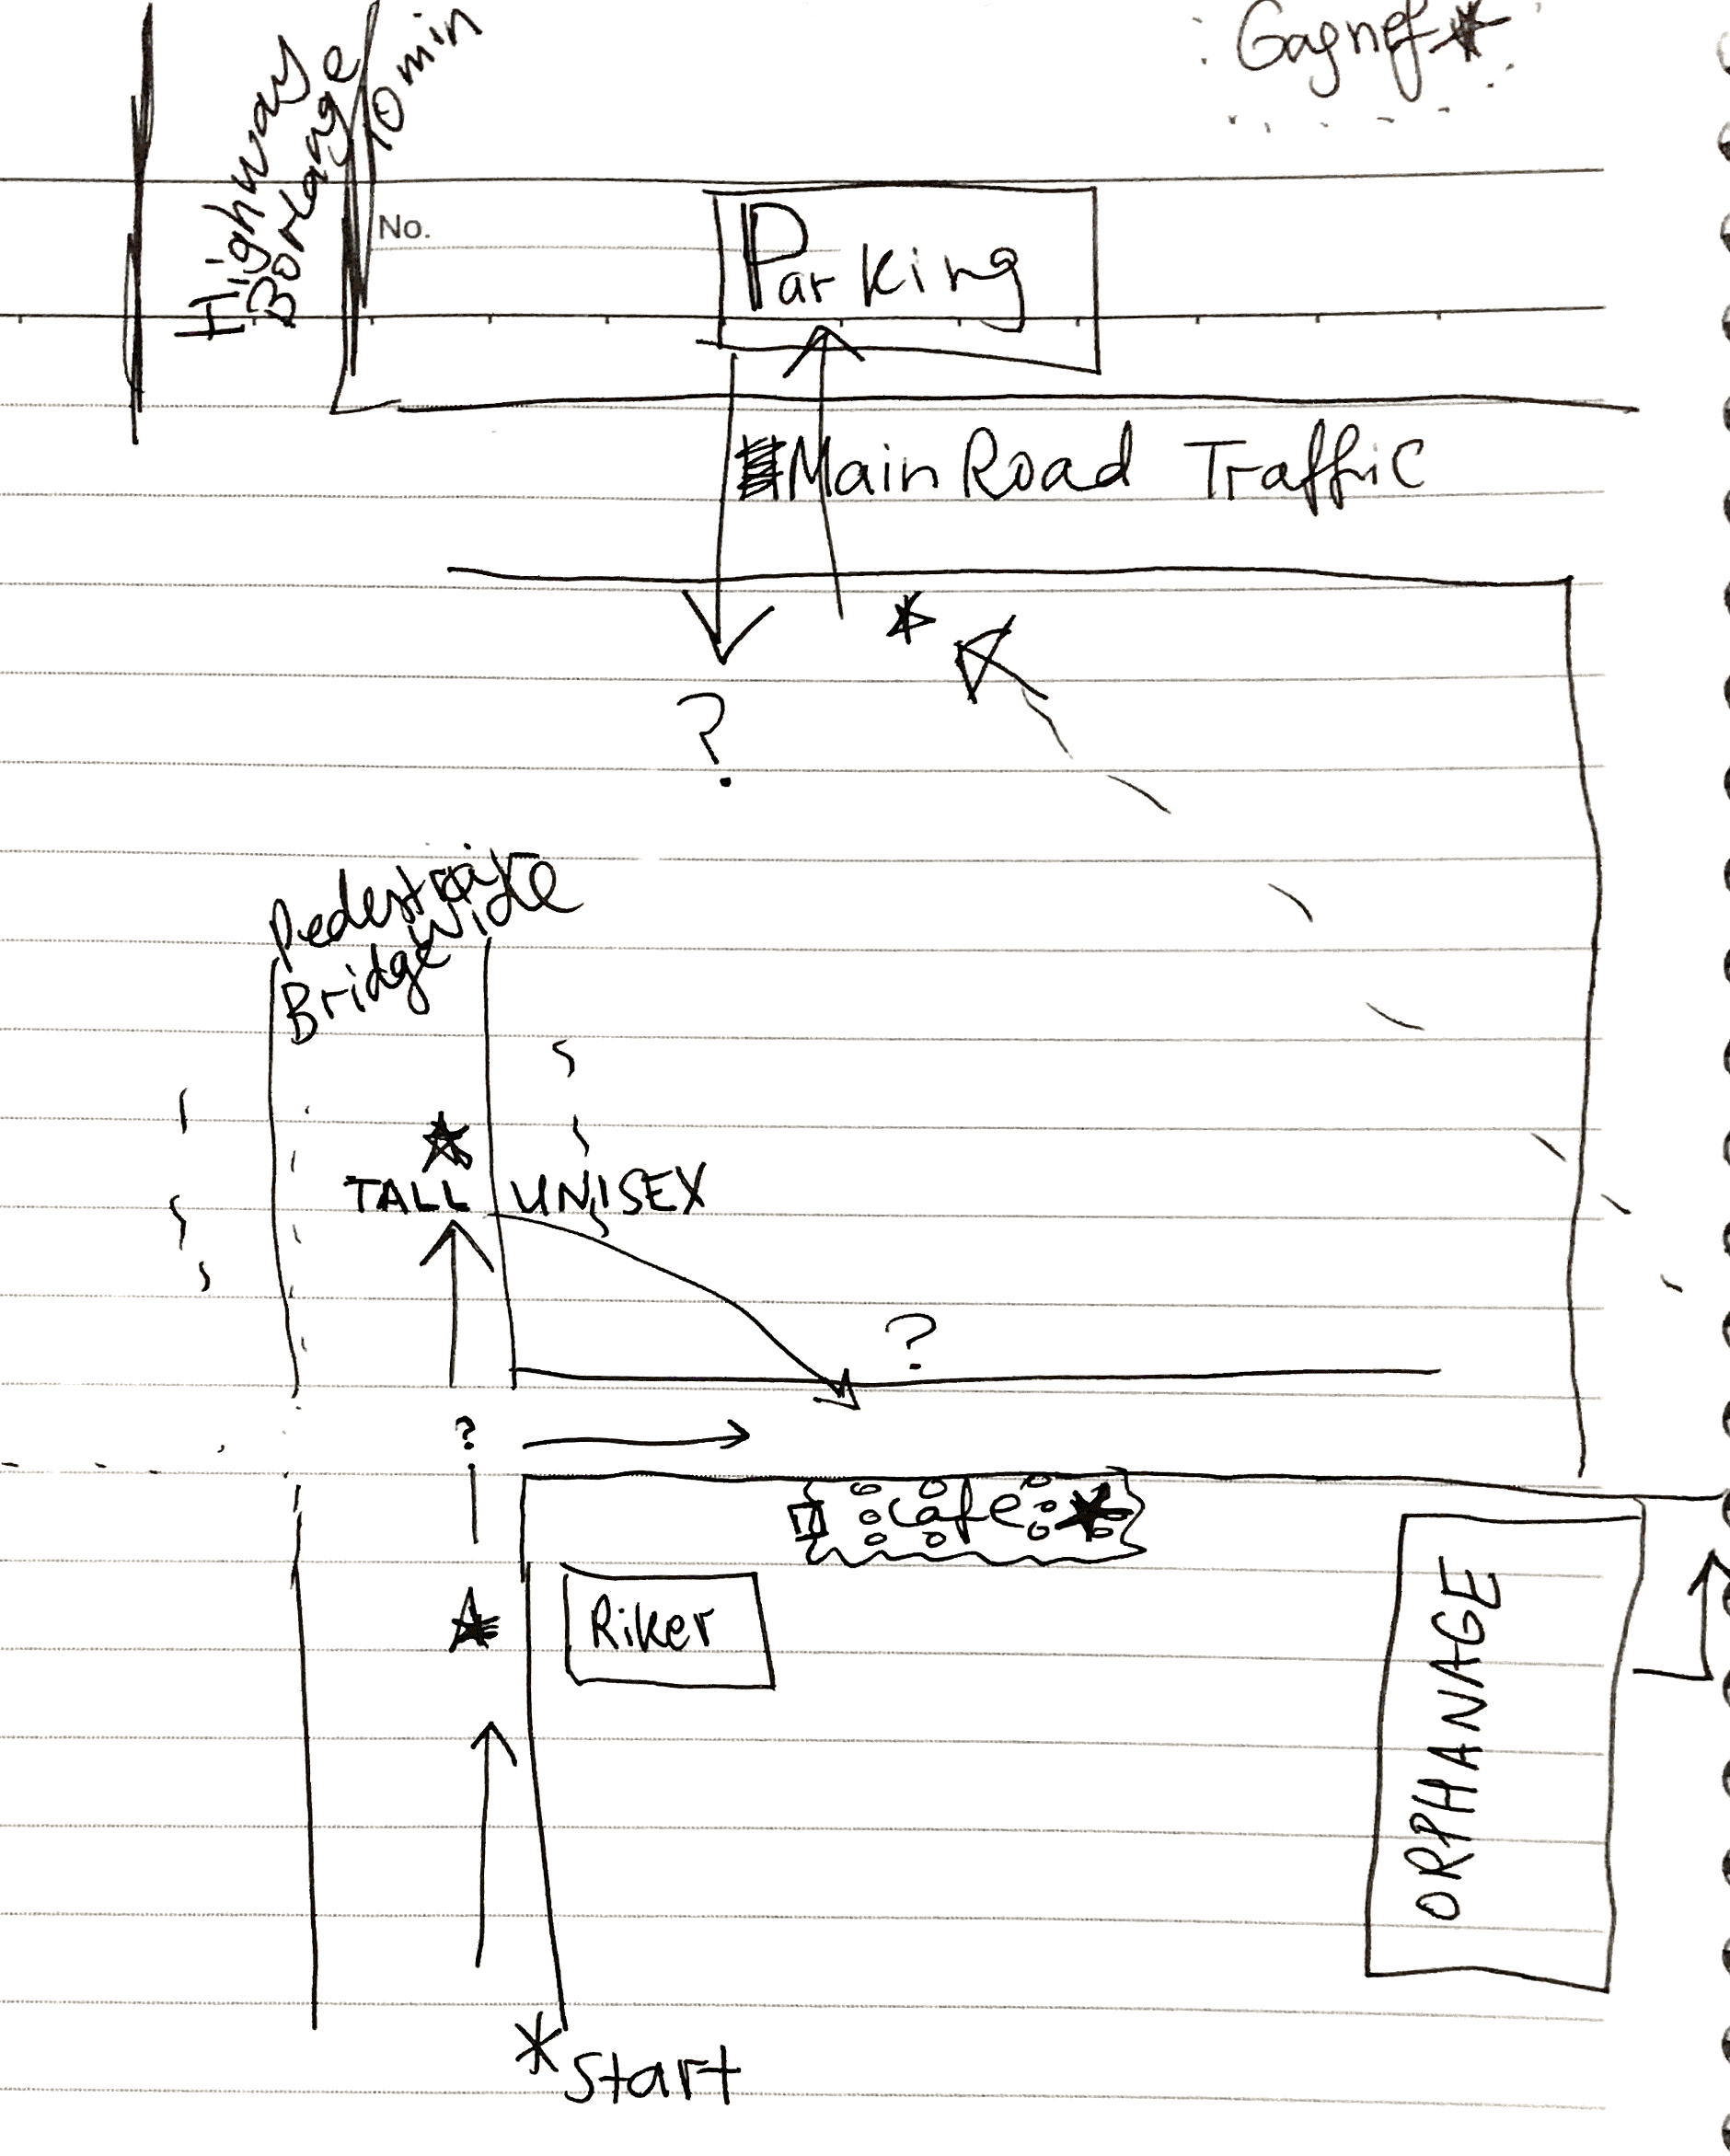 Gagnef
Highway
Borlänge
10 min
No.
Parking
Main Road Traffic
?
Bridge Wide
TALL UNISEX
?
?
cafe
Riker
ORPHANAGE
Start